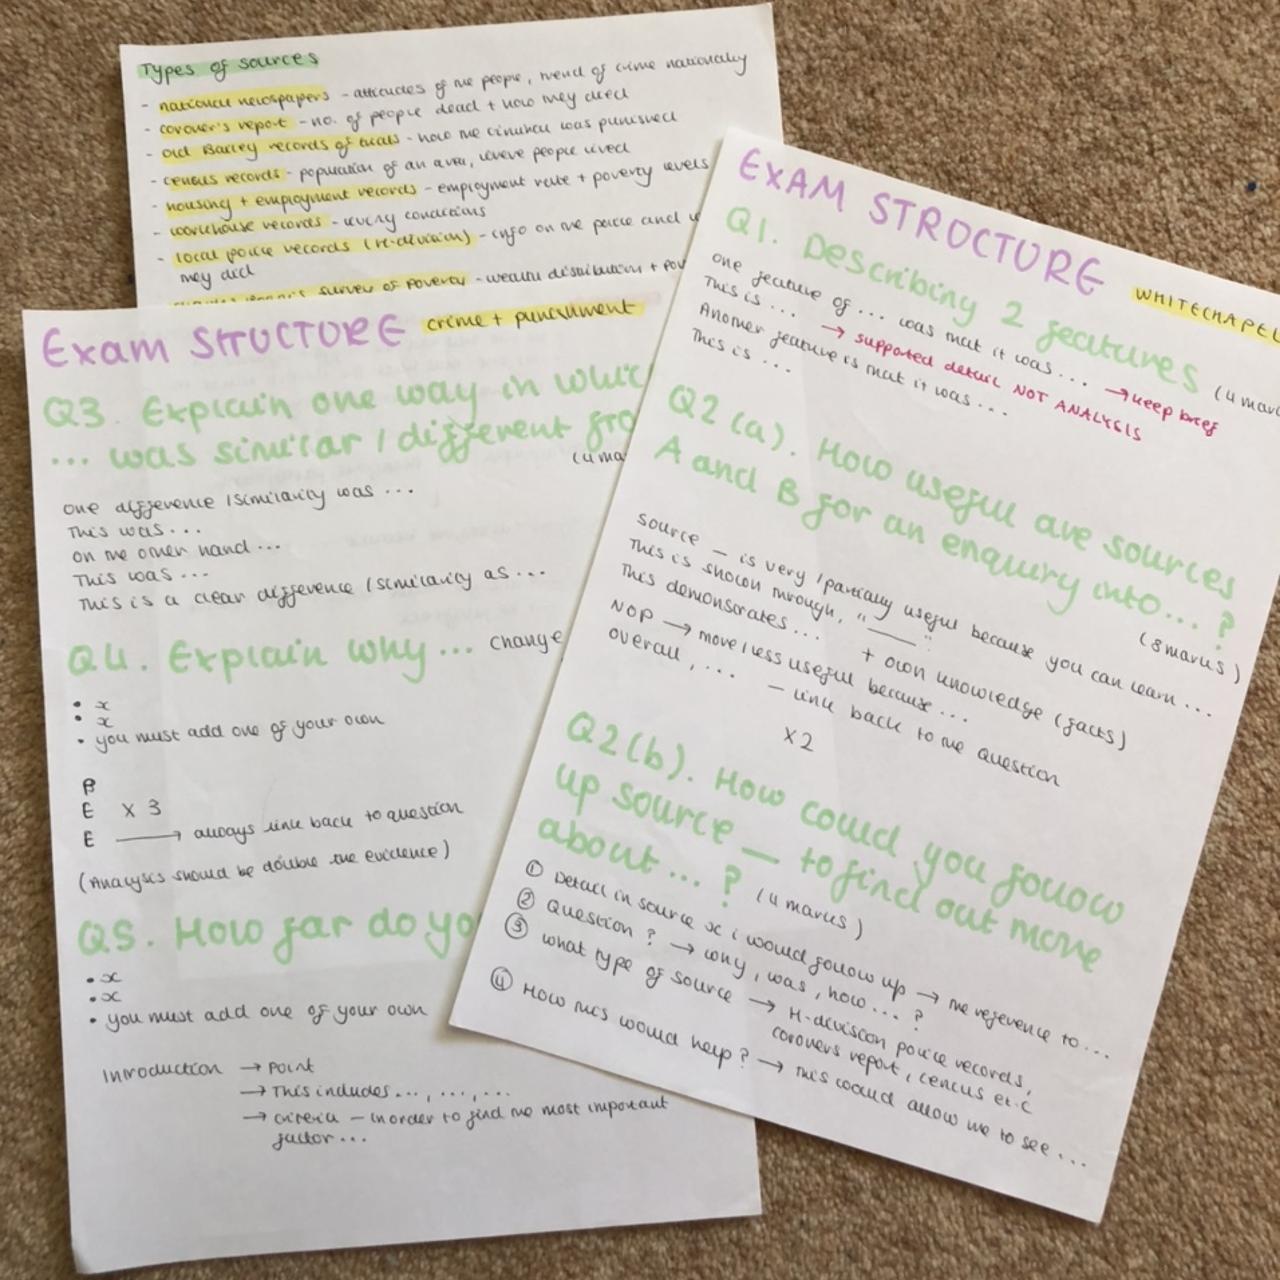 Types of sources
- national newspapers - attitudes of the people, trend of crime nationally
- coroner's report - no. of people dead + how they died
- old Bailey records of trials - how the criminal was punished
- census records - population of an area, where people lived
- housing + employment records - employment rate + poverty levels
- workhouse records - living conditions
- local police records (H-division) - info on the police and
they did
survey of poverty - wealth distribution + pov
Exam STRUCTURE crime + punishment
Q3. Explain one way in whic
... was similar / different fro
(4 ma
one difference / similarity was ...
This was ...
on the other hand ...
This was ...
This is a clear difference / similarity as ...
Q4. Explain why ... change
• x
• x
• you must add one of your own
P
E x 3
E → always link back to question
(Analysis should be double the evidence)
Q5. How far do yo
• x
• x
• you must add one of your own
Introduction → Point
→ This includes ..., ..., ...
→ criteria - in order to find the most important
factor ...
EXAM STRUCTURE WHITECHAPEL
Q1. Describing 2 features (4 mar
one feature of ... was that it was ... → keep brief
This is ... → supported detail NOT ANALYSIS
Another feature is that it was ...
This is ...
Q2(a). How useful are sources
A and B for an enquiry into ... ?
(8 marks)
source — is very / partially useful because you can learn ...
This is shown through, " —— "
This demonstrates ... + own knowledge (facts)
NOP → more / less useful because ...
overall, ... - link back to the question
x 2
Q2(b). How could you follow
up source — to find out more
about ... ? (4 marks)
① Detail in source x i would follow up → the reference to ...
② Question ? → why, was, how ... ?
③ what type of source → H-division police records,
coroners report, cencus et.c
④ How this would help? → this would allow me to see ...